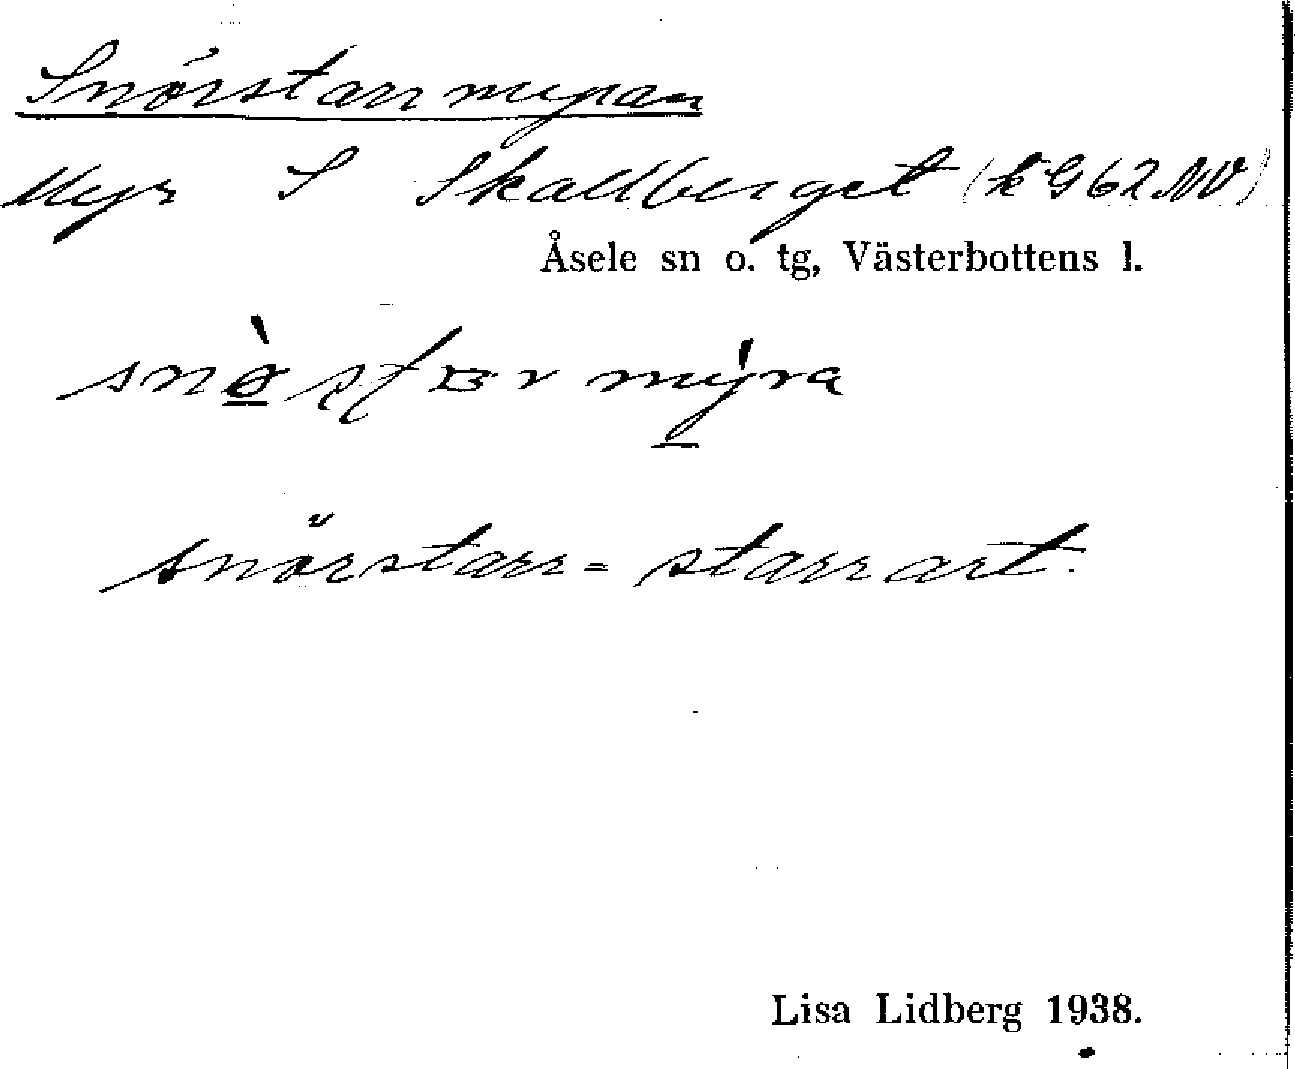 Snörstarrmyran
Myr S Skallberget (k G 62 NV)
Åsele sn o. tg, Västerbottens l.
snörstarr = starrart.
Lisa Lidberg 1938.